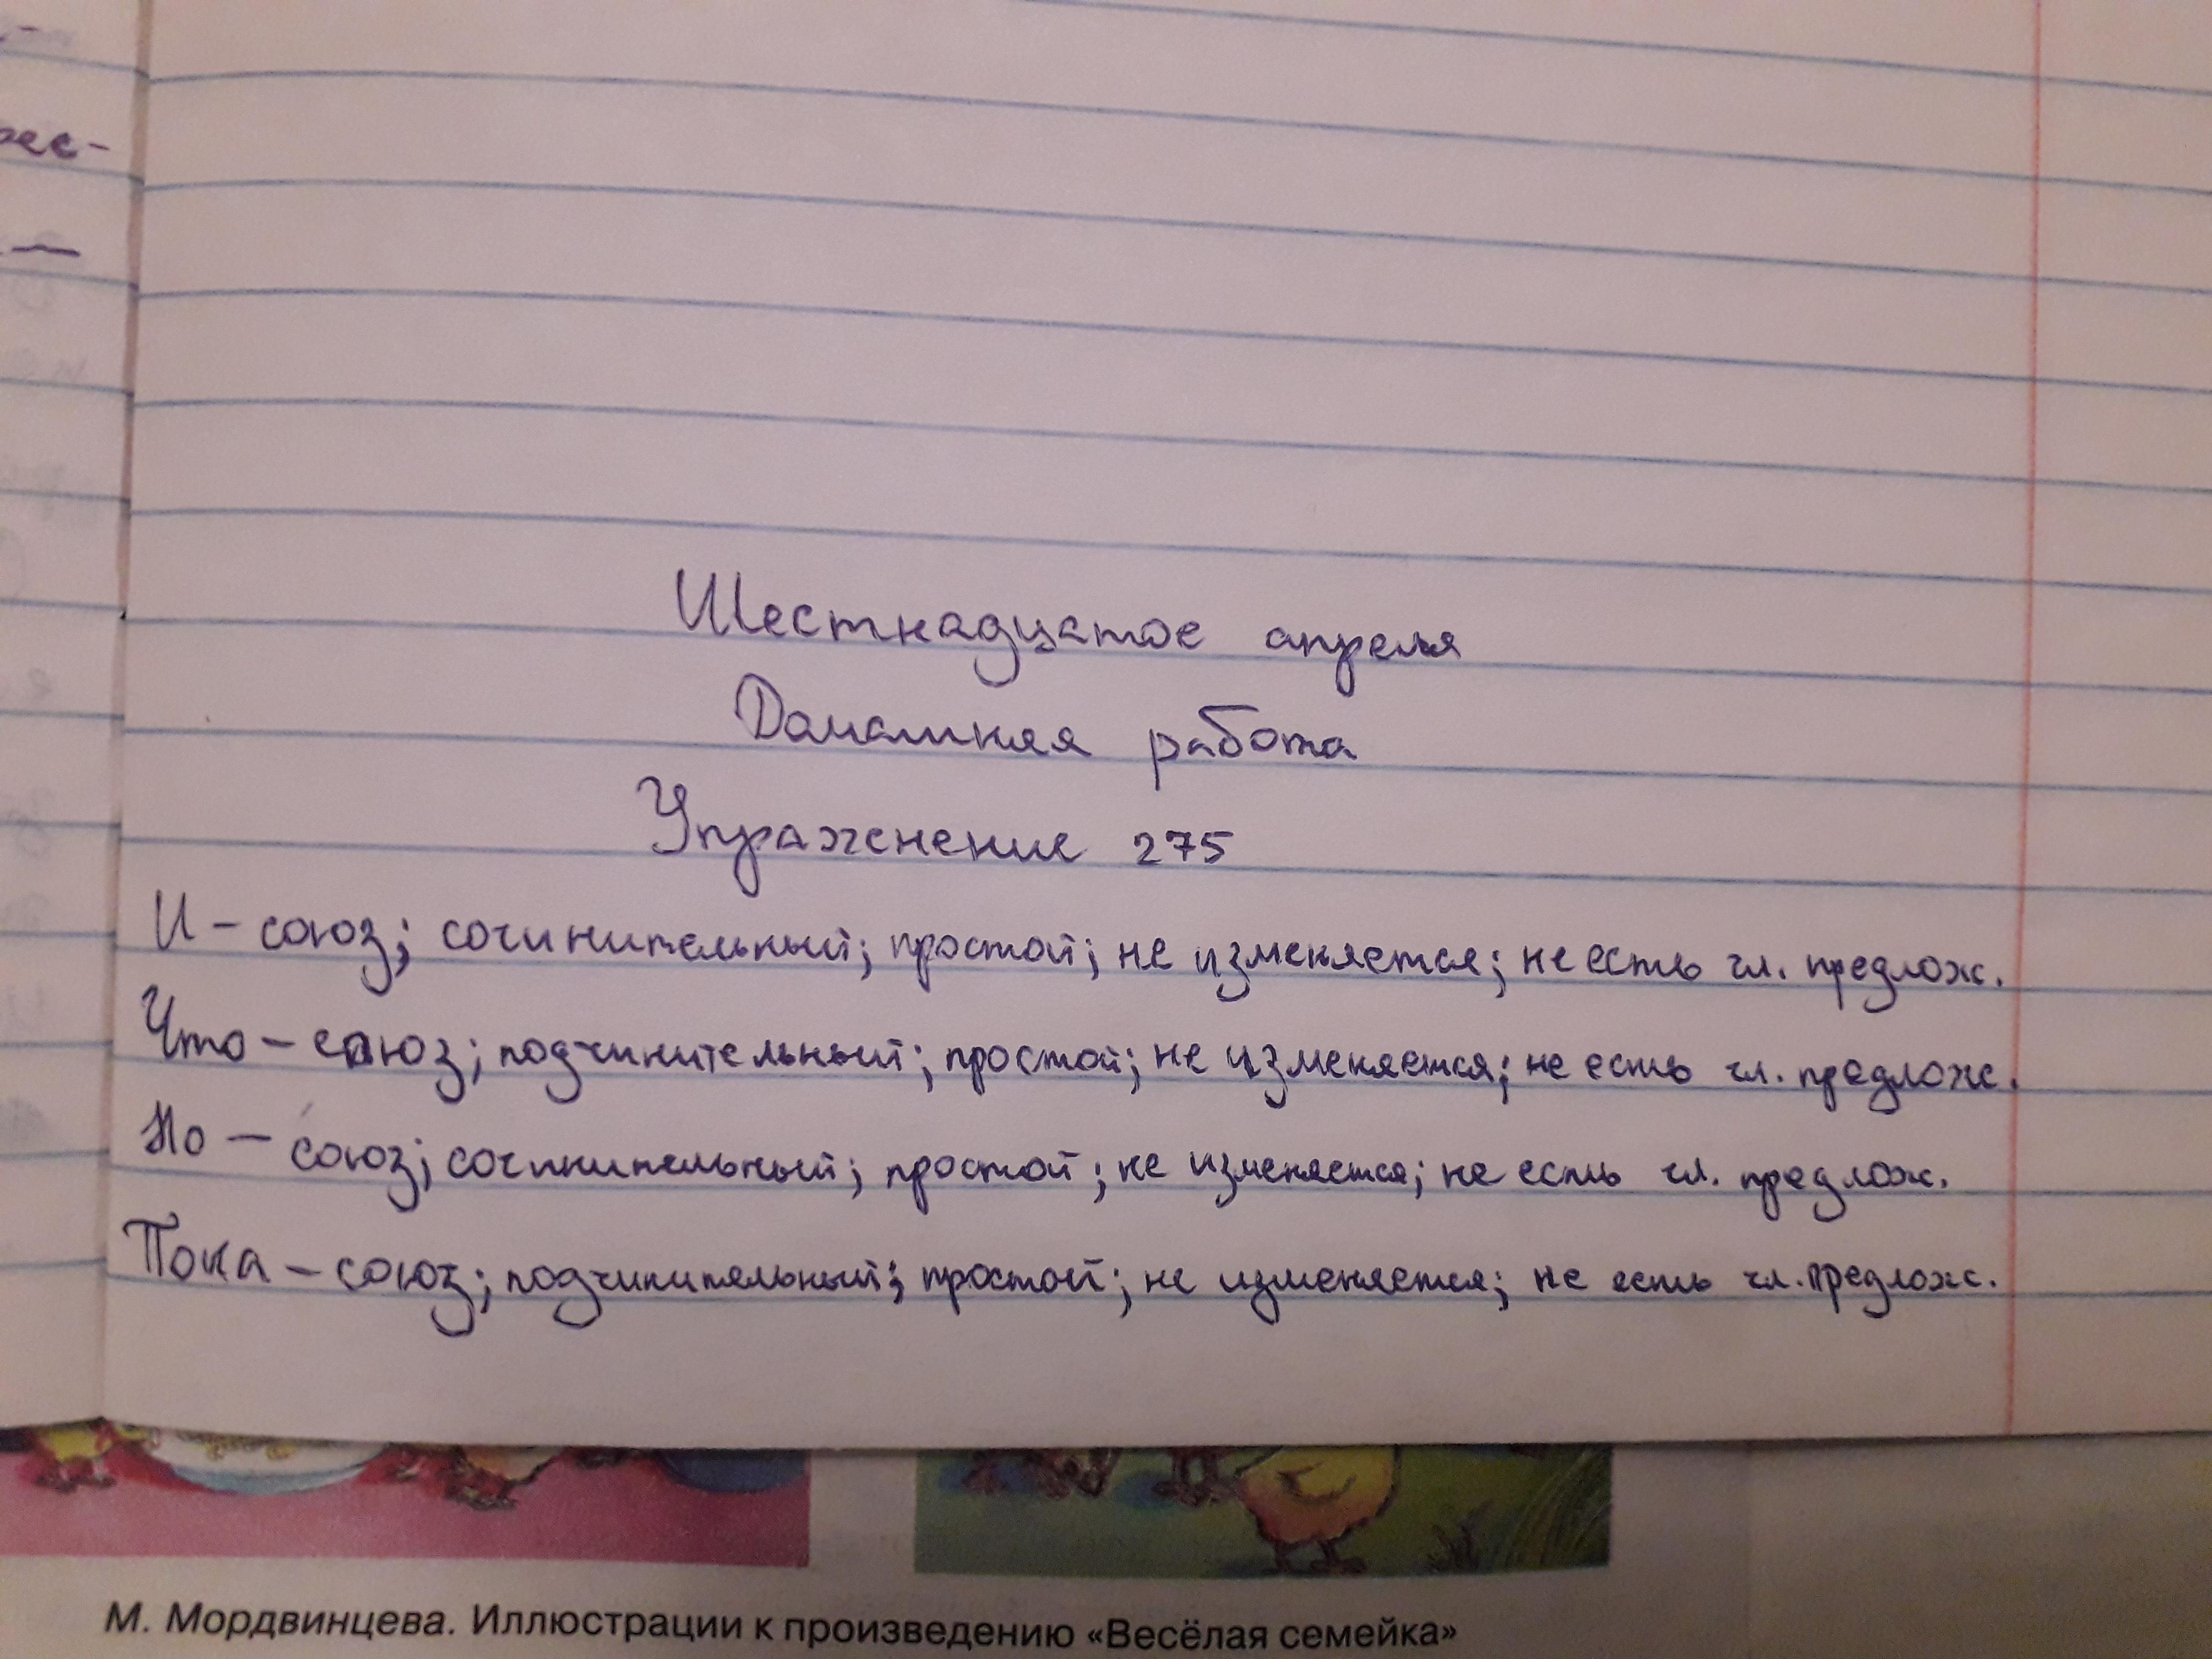 рес-
Шестнадцатое апреля
Домашняя работа
Упражнение 275
И – союз; сочинительный; простой; не изменяется; не есть чл. предлож.
Что – союз; подчинительный; простой; не изменяется; не есть чл. предлож.
Но – союз; сочинительный; простой; не изменяется; не есть чл. предлож.
Пока – союз; подчинительный; простой; не изменяется; не есть чл. предлож.
М. Мордвинцева. Иллюстрации к произведению «Весёлая семейка»